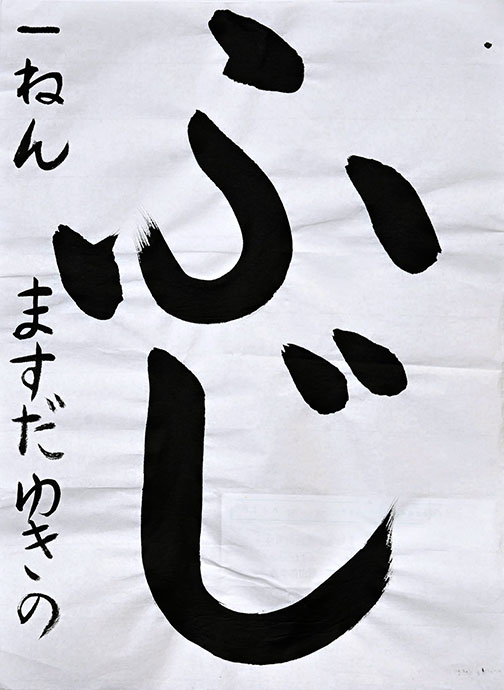 ふじ
一ねん ますだゆきの